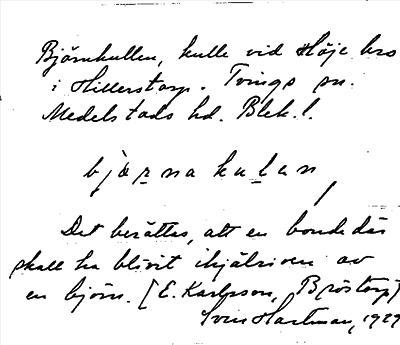 Björnkullen, kulle vid Höje bro
i Hillerstorp. Tvings sn.
Medelstads hd. Blek. l.
bjɶrnakulan
Det berättas, att en bonde där
skall ha blivit ihjälriven av
en björn. [E. Karlsson, Bröstorp]
Sven Hartman, 1929